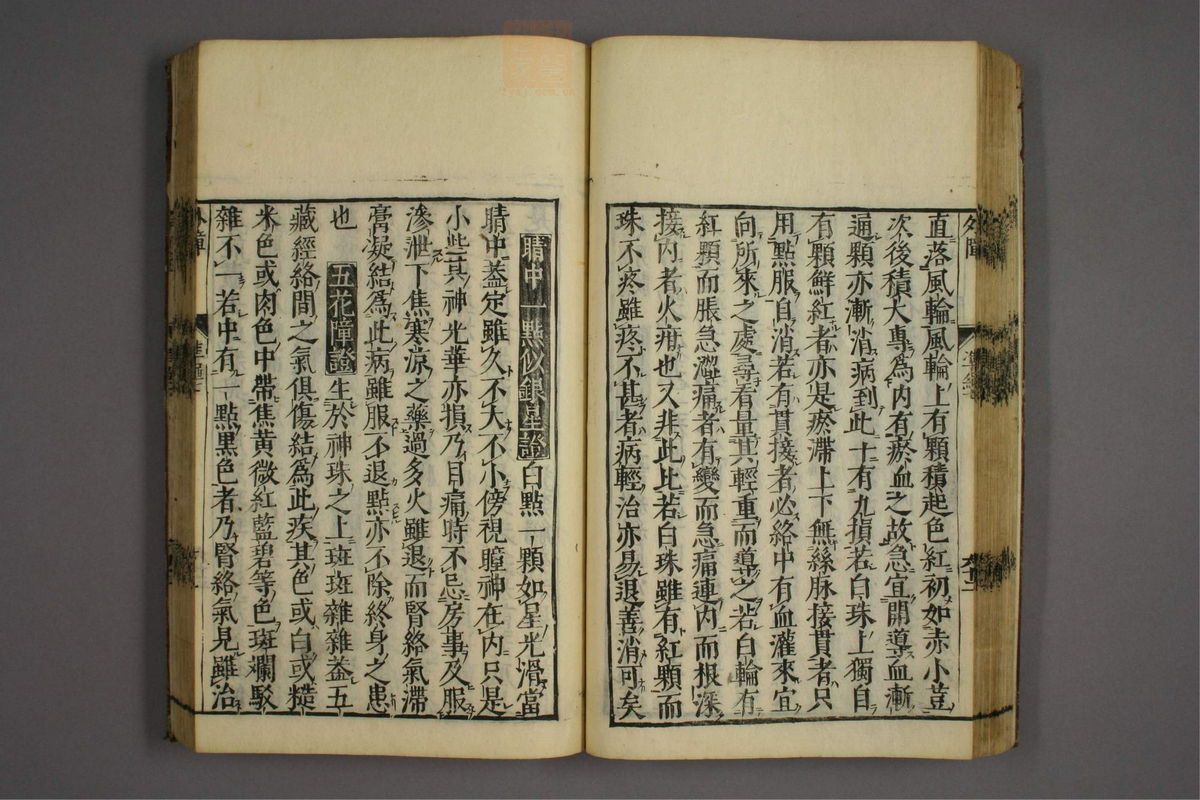 直落風輪風輪上有顆積起色紅初如赤小荳
次後積大專爲内有瘀血之故急宜開導血漸
通顆亦漸消病到此十有九損若白珠上獨自
有顆鮮紅者亦是瘀滯上下無絲脉接貫者只
用點服自消若有貫接者必絡中有血灌來宜
向所來之處尋看量其輕重而導之若白輪有
紅顆而脹急澀痛者有變而急痛連内而根深
接内者火疳也又非此比若白珠雖有紅顆而
珠不疼雖疼不甚者病輕治亦易退善消可矣
睛中一點似銀星證 白點一顆如星光滑當
睛中葢定雖久不大不小傍視瞳神在内只是
小些其神光華亦損乃目痛時不忌房事及服
滲泄下焦寒凉之藥過多火雖退而腎絡氣滯
膏凝結爲此病雖服不退點亦不除終身之患
也 五花障證 生於神珠之上斑斑雜雜葢五
藏經絡間之氣俱傷結爲此疾其色或白或糙
米色或肉色中帶焦黄微紅藍碧等色斑斕駁
雜不一若中有一點黒色者乃腎絡氣見雖治
外障